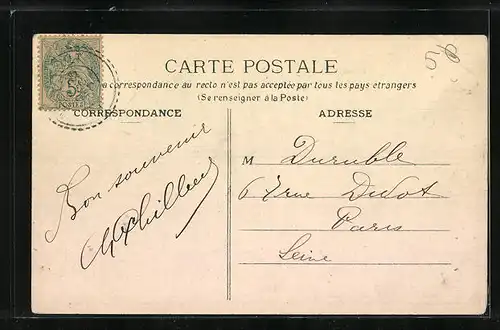 5
POSTES
CARTE POSTALE
a correspondance au recto n'est pas acceptée par tous les pays étrangers
(Se renseigner à la Poste)
CORRESPONDANCE
Bon souvenir
ADRESSE
M Duruble
67 rue Didot
Paris
Seine